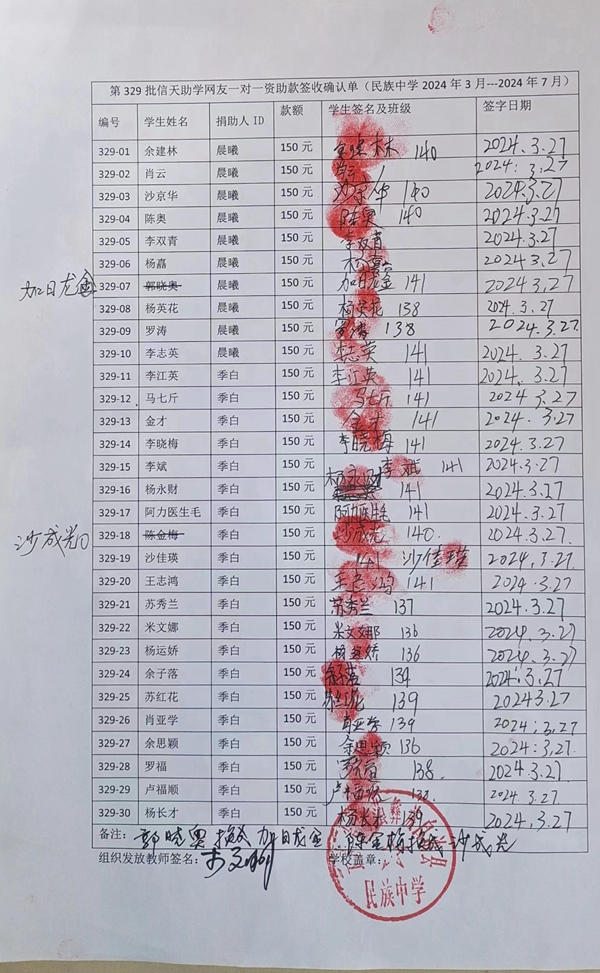 第 329 批信天助学网友一对一资助款签收确认单（民族中学 2024 年 3 月---2024 年 7 月）
编号 学生姓名 捐助人 ID 款额 学生签名及班级 签字日期
329-01 余建林 晨曦 150 元 余建林 140 2024.3.27
329-02 肖云 晨曦 150 元 肖云 2024.3.27
329-03 沙京华 晨曦 150 元 沙京华 140 2024.3.27
329-04 陈奥 晨曦 150 元 陈奥 140 2024.3.27
329-05 李双青 晨曦 150 元 李双青 2024.3.27
329-06 杨嘉 晨曦 150 元 杨嘉 2024.3.27
加日龙金 329-07 郭晓奥 晨曦 150 元 加日龙金 141 2024.3.27
329-08 杨英花 晨曦 150 元 杨英花 138 2024.3.27
329-09 罗涛 晨曦 150 元 罗涛 138 2024.3.27
329-10 李志英 晨曦 150 元 李志英 141 2024.3.27
329-11 李江英 季白 150 元 李江英 141 2024.3.27
329-12 马七斤 季白 150 元 马七斤 141 2024.3.27
329-13 金才 季白 150 元 金才 141 2024.3.27
329-14 李晓梅 季白 150 元 李晓梅 141 2024.3.27
329-15 李斌 季白 150 元 李斌 141 2024.3.27
329-16 杨永财 季白 150 元 杨永财 141 2024.3.27
329-17 阿力医生毛 季白 150 元 阿力医生毛 141 2024.3.27
沙成光 329-18 陈金梅 季白 150 元 沙成光 140. 2024.3.27
329-19 沙佳瑛 季白 150 元 141 沙佳瑛 2024.3.27
329-20 王志鸿 季白 150 元 王志鸿 141 2024.3.27
329-21 苏秀兰 季白 150 元 苏秀兰 137 2024.3.27
329-22 米文娜 季白 150 元 米文娜 136 2024.3.27
329-23 杨运娇 季白 150 元 杨运娇 136 2024.3.27
329-24 余子落 季白 150 元 余子落 134 2024.3.27
329-25 苏红花 季白 150 元 苏红花 139 2024.3.27
329-26 肖亚学 季白 150 元 肖亚学 139 2024.3.27
329-27 余思颖 季白 150 元 余思颖 136 2024.3.27
329-28 罗福 季白 150 元 罗福 138. 2024.3.27
329-29 卢福顺 季白 150 元 卢福顺 2024.3.27
329-30 杨长才 季白 150 元 杨长才 139 2024.3.27
备注：郭晓奥换成加日龙金 陈金梅换成沙成光
组织发放教师签名： 学校盖章：
民族中学